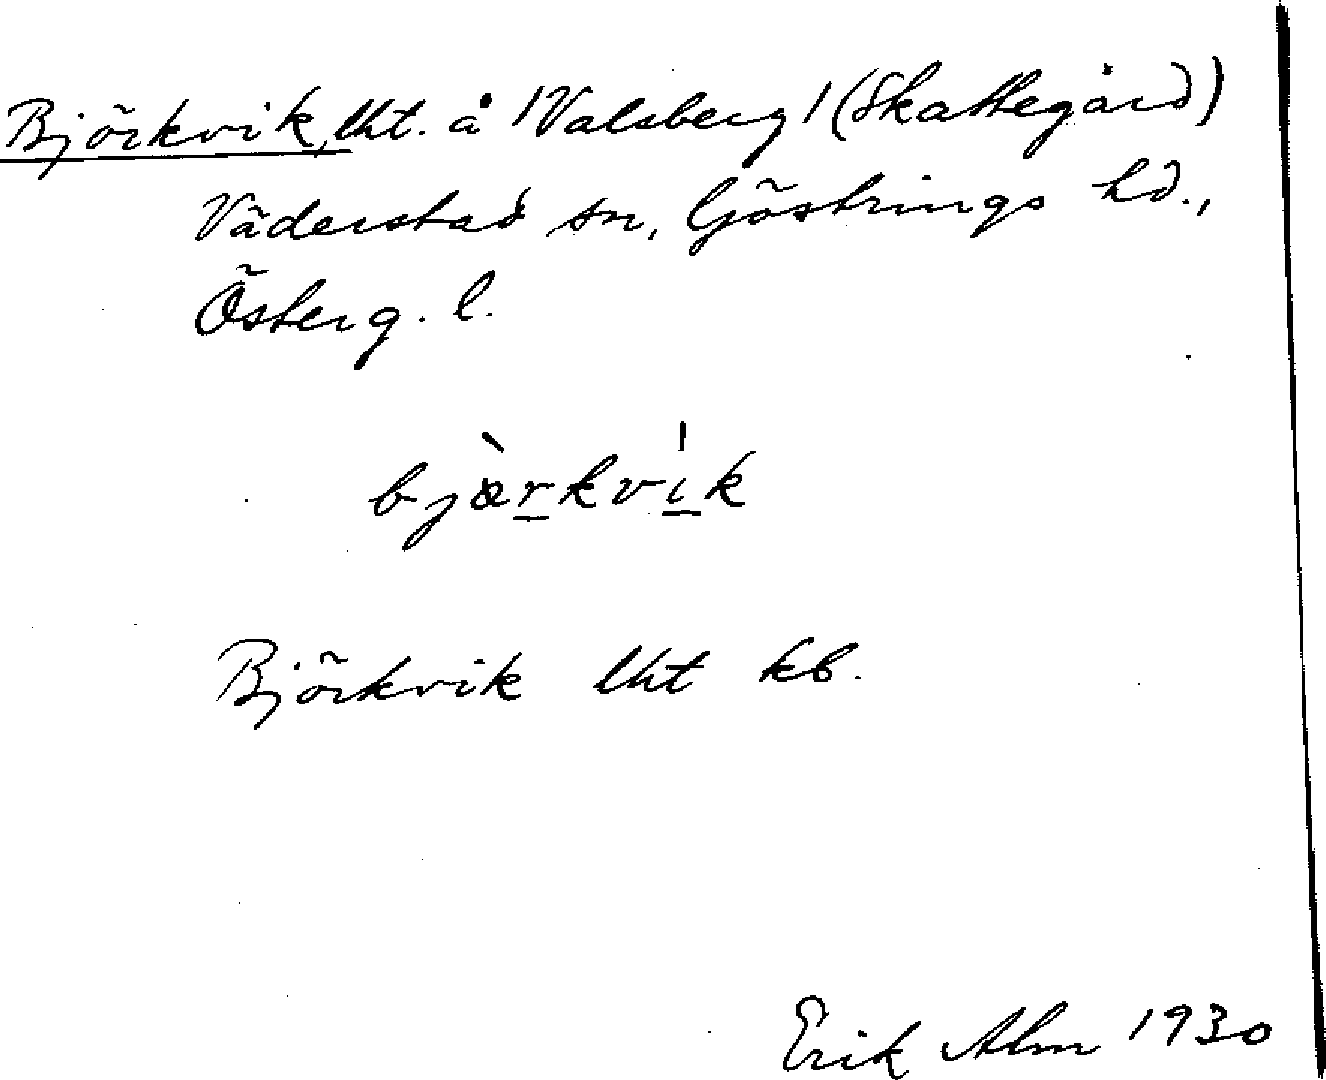 Björkvik, lht. å /Valsberg/ (Skattegård)
Väderstad sn, Göstrings hd.,
Österg. l.
bjæ̀rkvík
Björkvik lht kb.
Erik Alm 1930